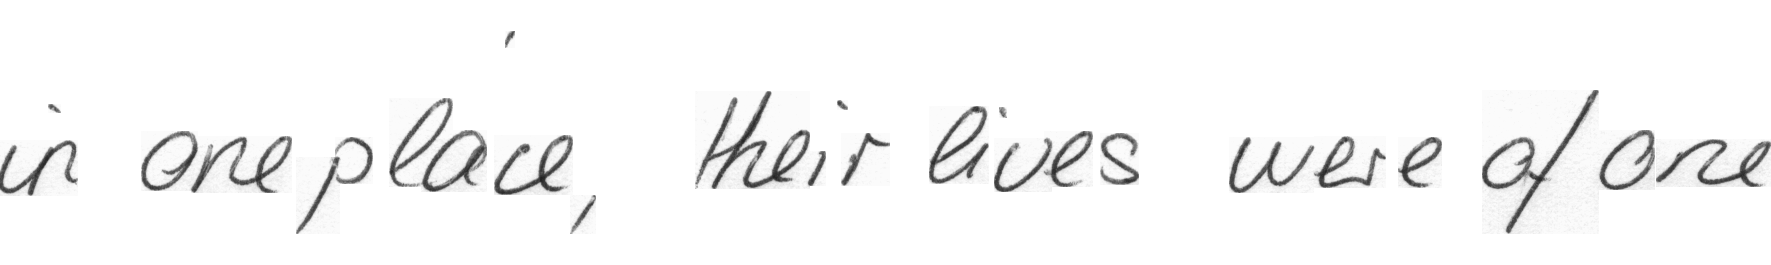 in one place, their lives were of one